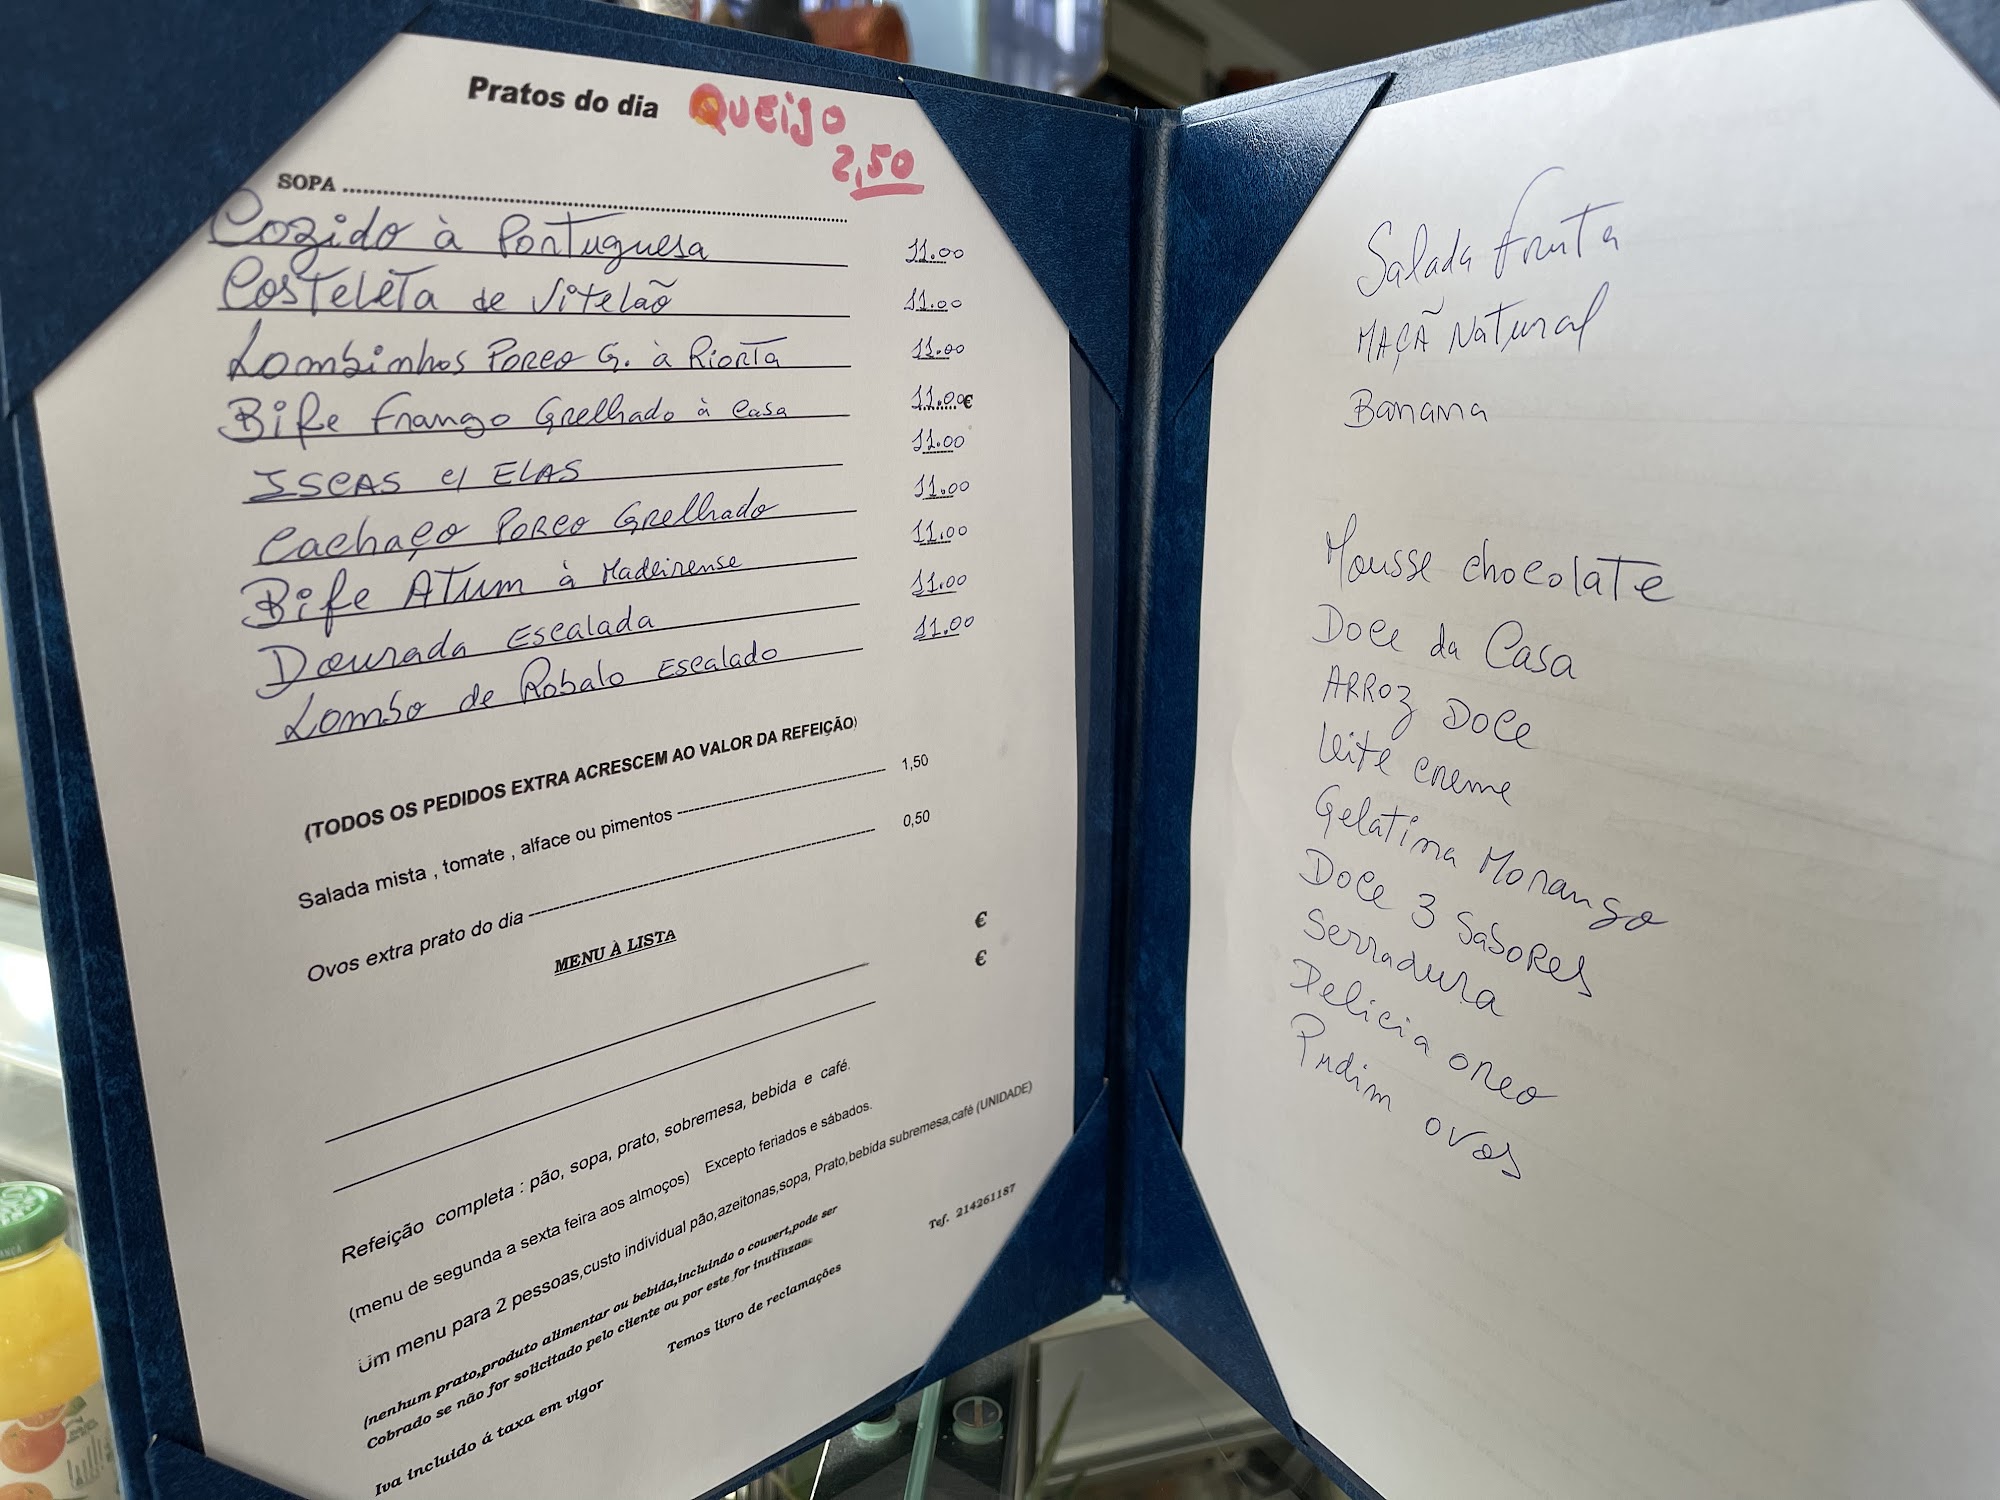 Pratos do dia QUEIJO
2,50
SOPA
Cozido à Portuguesa 11.00
Costeleta de Vitelão 11.00
Lombinhos Porco G. à Riorta 11.00
Bife Frango Grelhado à Casa 11.00€
ISCAS c/ ELAS 11.00
Cachaço Porco Grelhado 11.00
Bife Atum à Madeirense 11.00
Dourada Escalada 11.00
Lombo de Robalo Escalado 11.00
(TODOS OS PEDIDOS EXTRA ACRESCEM AO VALOR DA REFEIÇÃO)
Salada mista , tomate , alface ou pimentos 1,50
Ovos extra prato do dia 0,50
MENU À LISTA
€
€
Refeição completa : pão, sopa, prato, sobremesa, bebida e café.
(menu de segunda a sexta feira aos almoços) Excepto feriados e sábados.
Um menu para 2 pessoas,custo individual pão,azeitonas,sopa, Prato,bebida subremesa,café (UNIDADE)
(nenhum prato,produto alimentar ou bebida,incluindo o couvert,pode ser
Cobrado se não for solicitado pelo cliente ou por este for inutilizado
Tef. 214261187
Iva incluido á taxa em vigor Temos livro de reclamações
Salada Fruta
MAÇÃ Natural
Banana
Mousse chocolate
Doce da Casa
ARROZ DOCE
Leite creme
Gelatina Morango
Doce 3 Sabores
Serradura
Delicia oreo
Pudim ovos